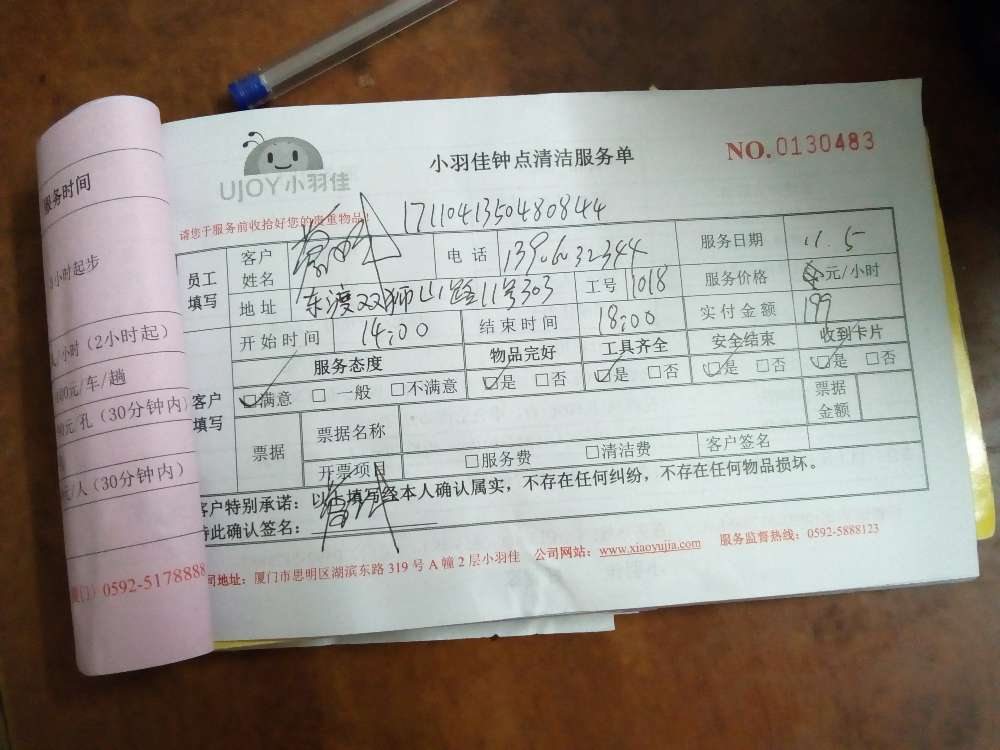 服务时间
小时起步
小时（2小时起）
00元/车/趟
元/孔（30分钟内）
元/人（30分钟内）
0592-5178888
UJOY小羽佳
小羽佳钟点清洁服务单
NO.0130483
请您于服务前收拾好您的贵重物品！
1711041350480844
员工填写
客户姓名
电话
服务日期 11.5
地址 东渡双狮山路11号303
工号 11018
服务价格 元/小时
开始时间 14:00
结束时间 18:00
实付金额 199
客户填写
服务态度 物品完好 工具齐全 安全结束 收到卡片
☑满意 □一般 □不满意 ☑是 □否 ☑是 □否 ☑是 □否 ☑是 □否
票据 票据名称 票据金额
开票项目 □服务费 □清洁费 客户签名
客户特别承诺：以上填写经本人确认属实，不存在任何纠纷，不存在任何物品损坏。
特此确认签名：
司地址：厦门市思明区湖滨东路319号A幢2层小羽佳 公司网站：www.xiaoyujia.com 服务监督热线：0592-5888123